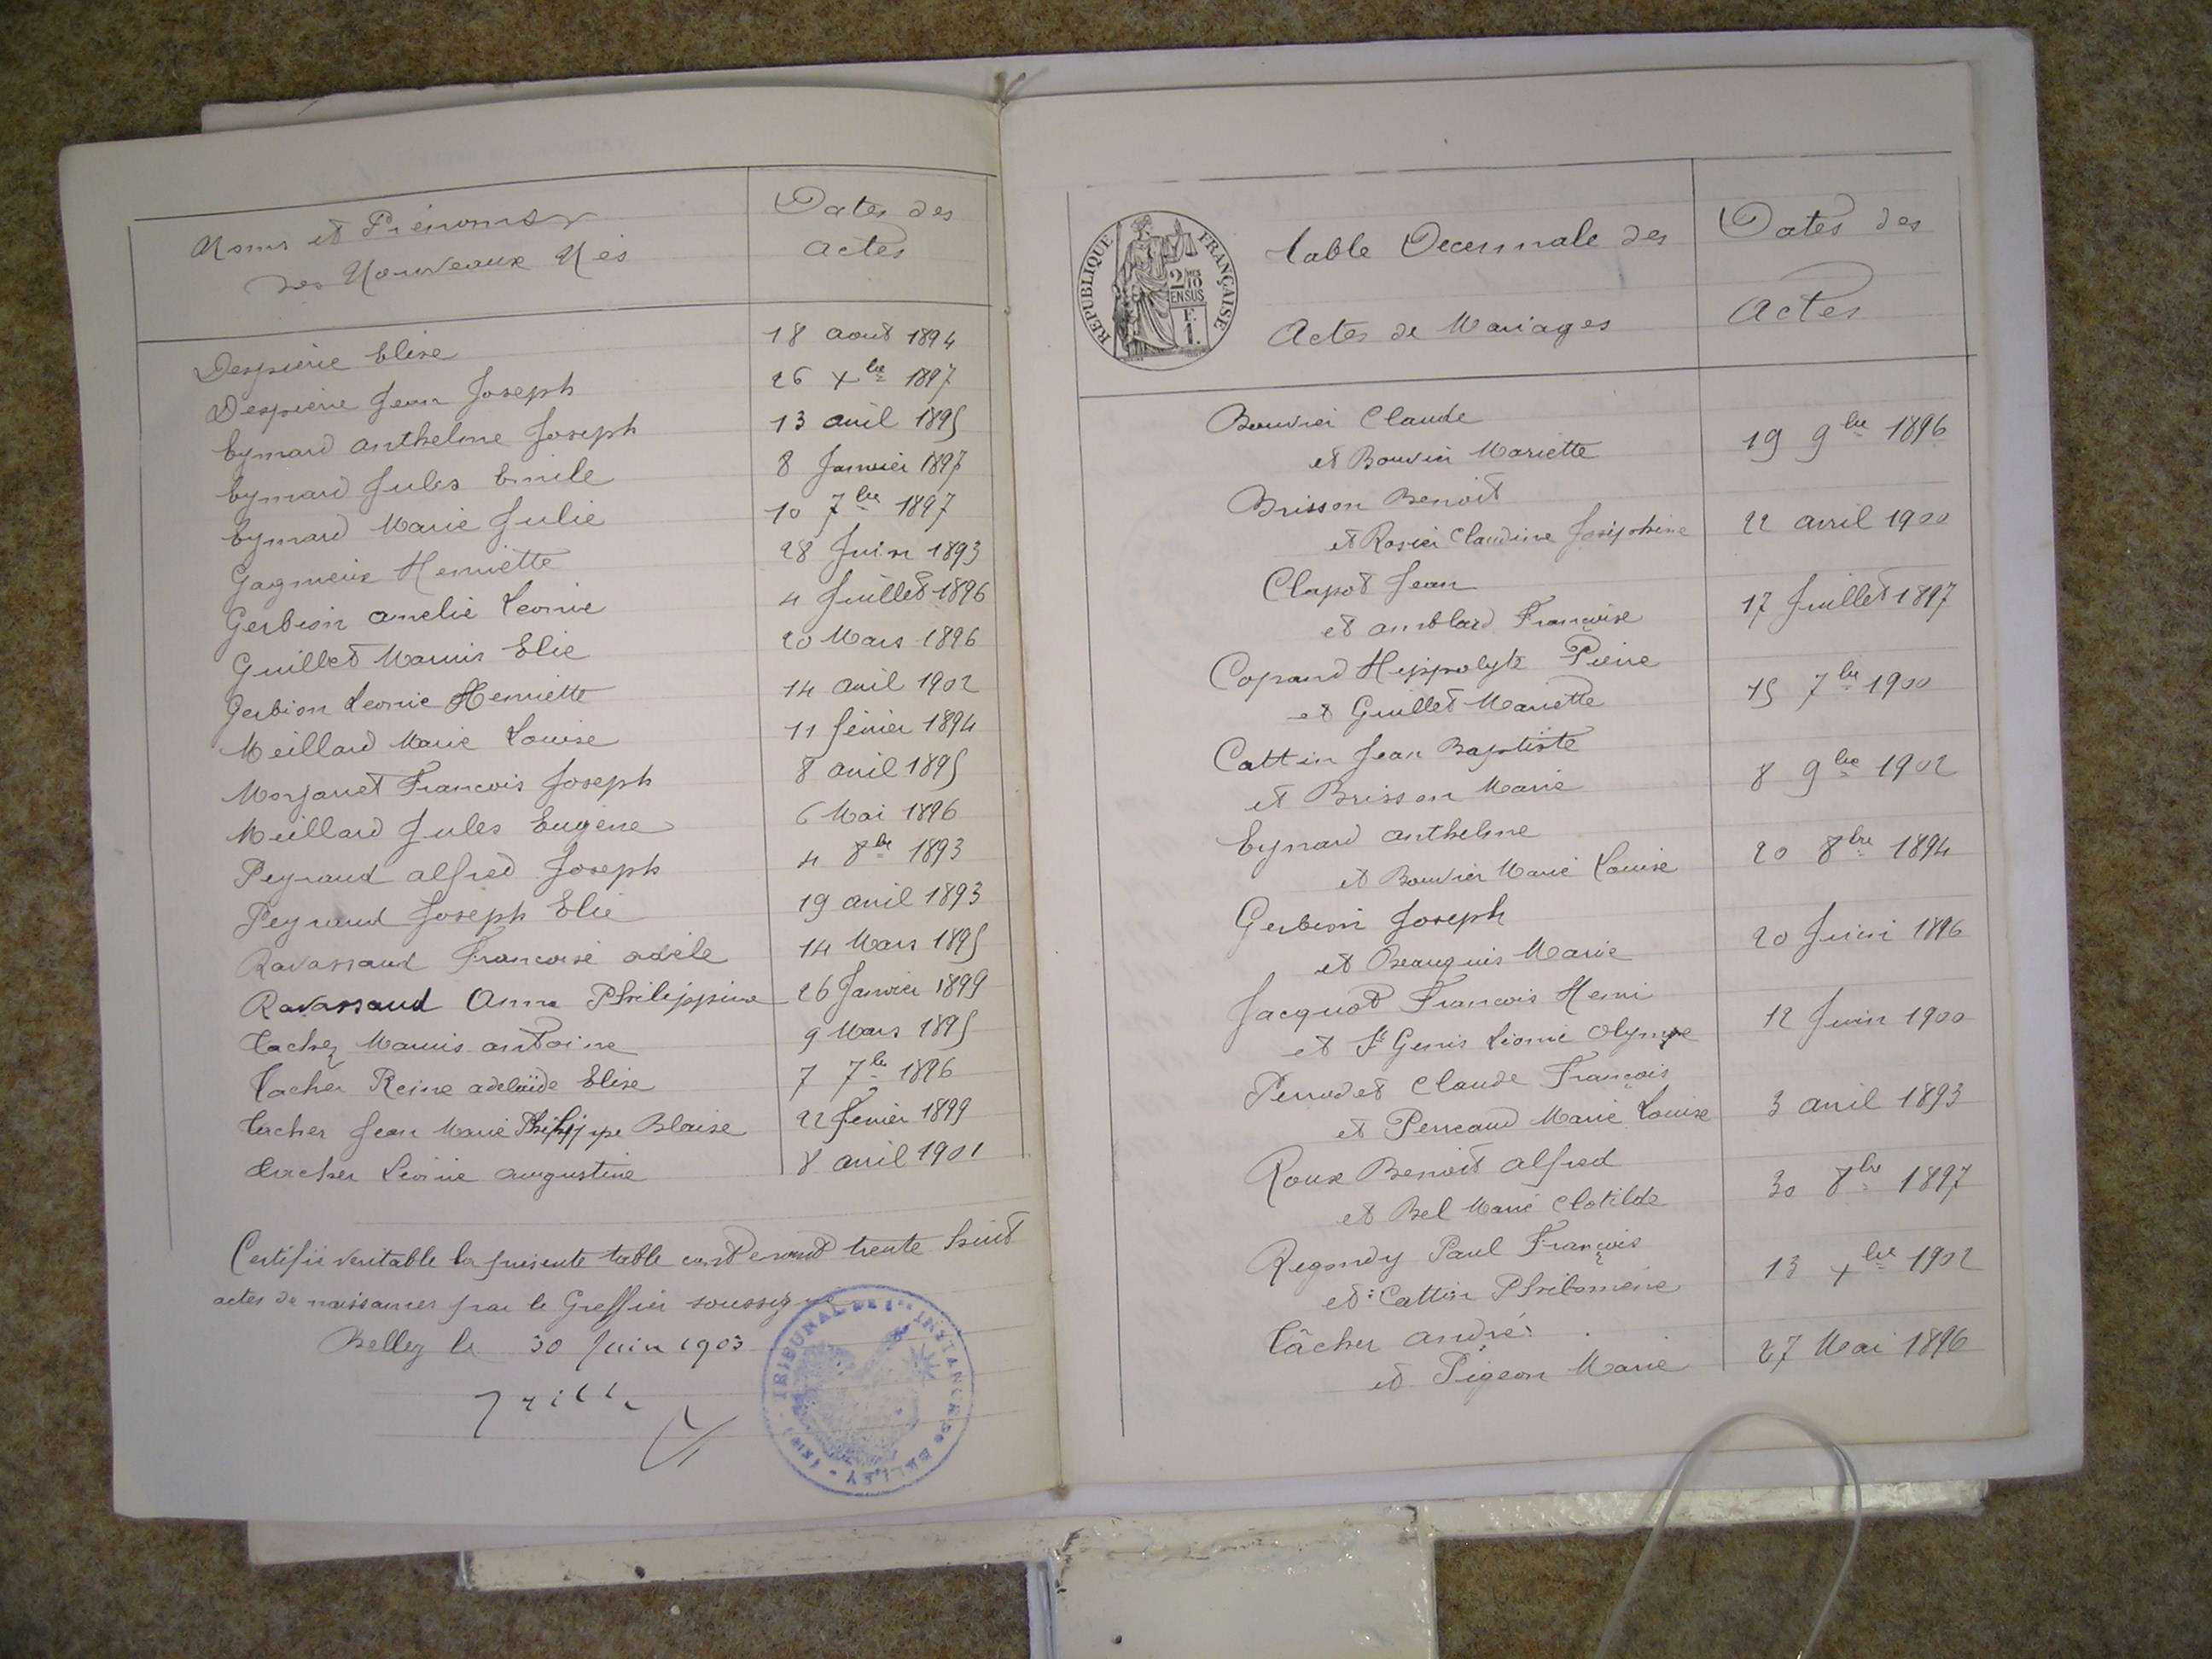 Noms et Prénoms
des Nouveaux Nés
Dates des
actes
Despierre Elise 18 aout 1894
Despierre Jean Joseph 26 Xbre 1897
Eymard anthelme Joseph 13 avril 1895
Eymard Jules Emile 8 Janvier 1897
Eymard Marie Julie 10 7bre 1897
Gagnieux Henriette 28 Juin 1893
Gerbion amelie Leonie 4 Juillet 1896
Guillet Marius Elie 20 Mars 1896
Gerbion Leonie Henriette 14 avril 1902
Meillard Marie Louise 11 fevrier 1894
Morjaret Francois Joseph 8 avril 1895
Meillard Jules Eugène 6 Mai 1896
Peyraud alfred Joseph 4 8bre 1893
Peyraud Joseph Elie 19 avril 1893
Ravassaud Francoise adèle 14 Mars 1895
Ravassaud Anna Philippine 26 Janvier 1899
Tacher Marius antoine 9 Mars 1895
Tacher Reine adelaïde Elise 7 7bre 1896
Tacher Jean Marie Philippe Blaise 22 fevrier 1899
Tacher Léonie augustine 8 avril 1901
Certifié veritable la presente table contenant trente huit
actes de naissances par le Greffier soussigné
Belley le 30 Juin 1903
TRIBUNAL DE 1re INSTANCE DE BELLEY (AIN)
REPUBLIQUE FRANÇAISE
2/10 EN SUS
F. 1.
Table Decennale des
Actes de Mariages
Dates des
Actes
Bouvier Claude
et Bouvier Mariette 19 9bre 1896
Brisson Benoit
et Rosier Claudine Joséphine 22 avril 1900
Clapot Jean
et amblard Françoise 17 Juillet 1897
Copraud Hippolyte Pierre
et Guillet Mariette 15 7bre 1900
Cattin Jean Baptiste
et Brisson Marie 8 9bre 1902
Eymard anthelme
et Bouvier Marie Louise 20 8bre 1894
Gerbion Joseph
et Beauquis Marie 20 Juin 1896
Jacquot Francois Henri
et St Genis Léonie Olympe 12 Juin 1900
Perrodet Claude François
et Perreaud Marie Louise 3 avril 1893
Roux Benoit alfred
et Bel Marie Clotilde 30 8bre 1897
Regondy Paul François
et Cattin Philomène 13 Xbre 1902
Tâcher andré
et Pigeon Marie 27 Mai 1896